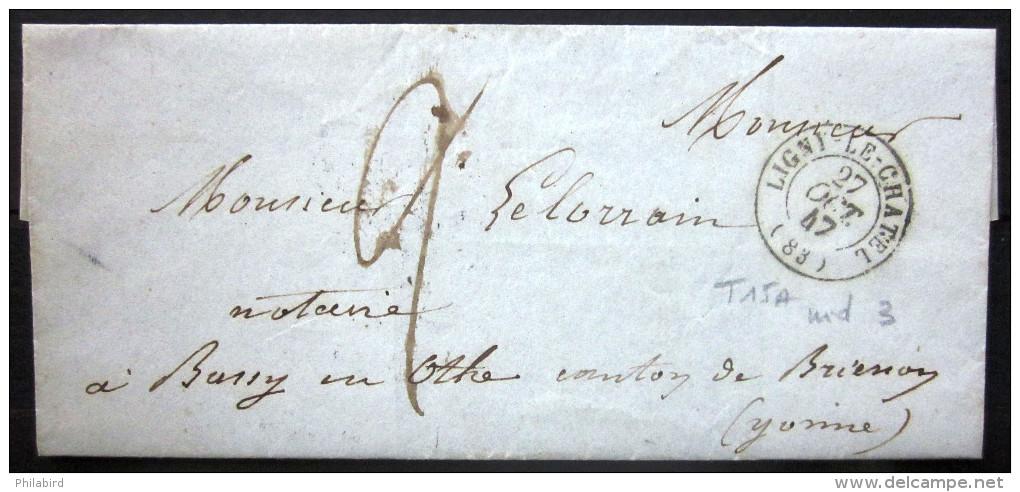 Monsieur
Monsieur Lelorrain
notaire
à Bussy en Othe canton de Brienon
(yonne)
2
LIGNY-LE-CHATEL
27
OCT.
47
(83)
T15A
ind 3
Philabird
delcampe.net